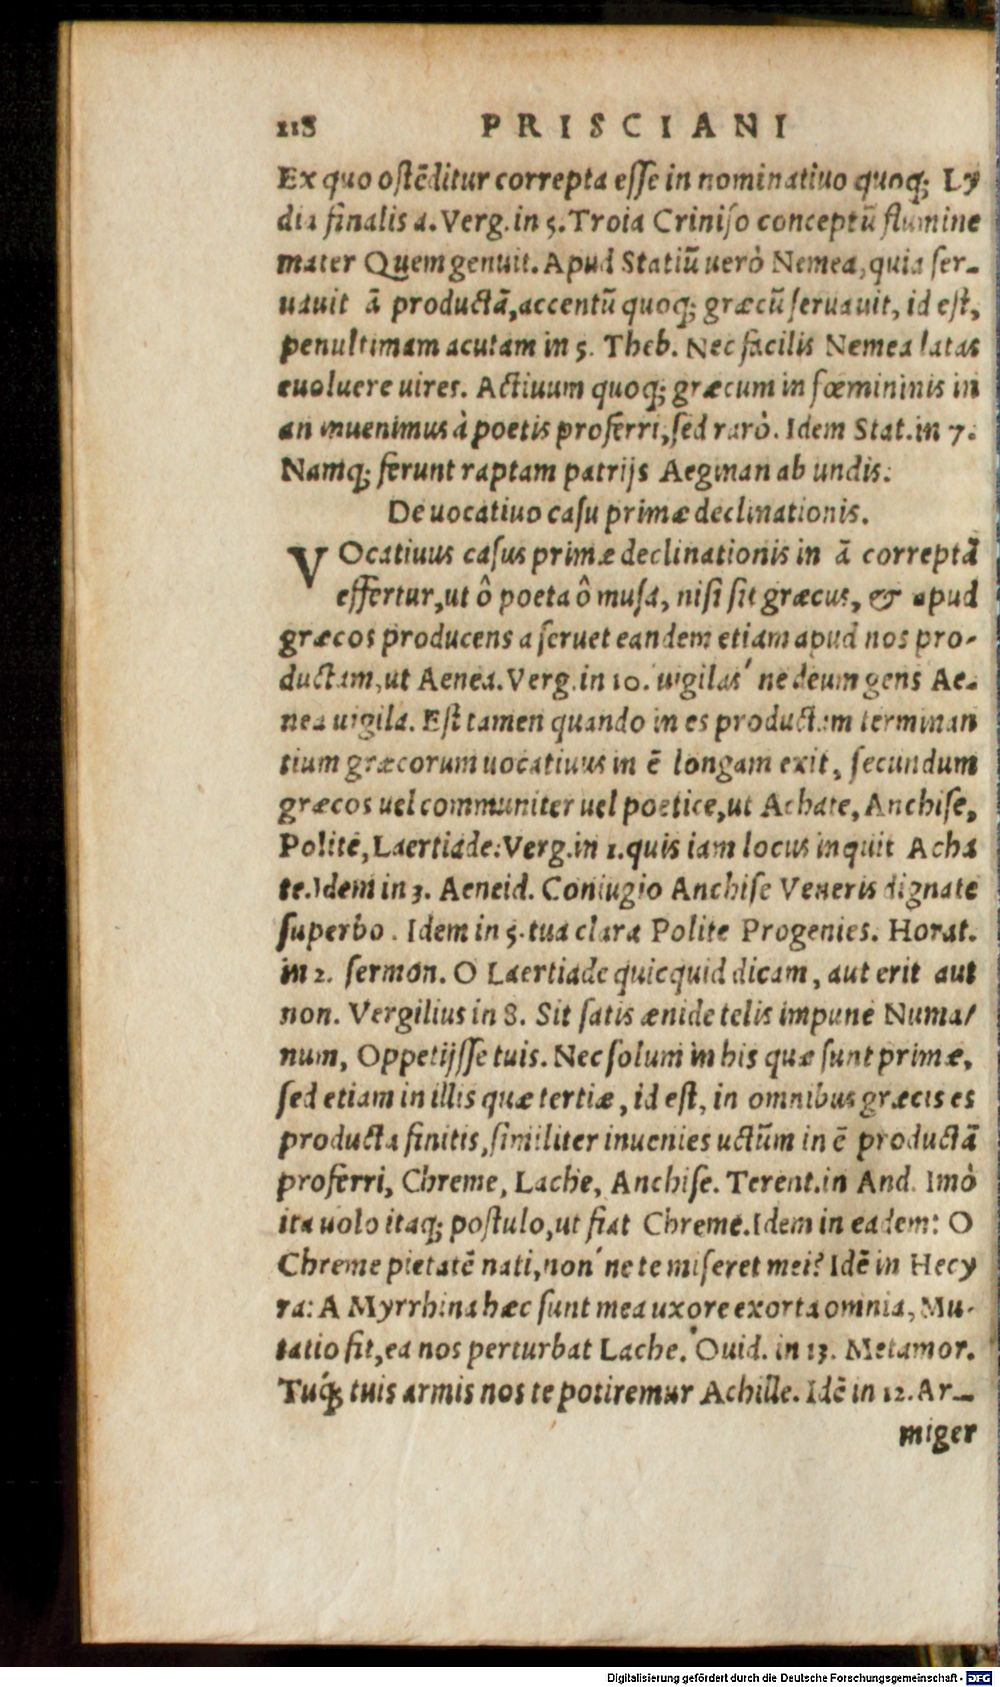 118 PRISCIANI
Ex quo ostēditur correpta esse in nominatiuo quoq; Ly
dia finalis a. Verg. in 5. Troia Criniso conceptū flumine
mater Quem genuit. Apud Statiū uerò Nemea, quia ser-
uauit ā productā, accentū quoq; græcū seruauit, id est,
penultimam acutam in 5. Theb. Nec facilis Nemea latas
euoluere uires. Actiuum quoq; græcum in fœmininis in
an inuenimus à poetis proferri, sed rarò. Idem Stat. in 7.
Namq; ferunt raptam patrijs Aeginan ab undis.
De uocatiuo casu primæ declinationis.
VOcatiuus casus primæ declinationis in ā correptā
effertur, ut ô poeta ô musa, nisi sit græcus, & apud
græcos producens a seruet eandem etiam apud nos pro-
ductam, ut Aenea. Verg. in 10. uigilas' ne deum gens Ae-
nea uigila. Est tamen quando in es productam terminan
tium græcorum uocatiuus in ē longam exit, secundum
græcos uel communiter uel poetice, ut Achate, Anchise,
Polite, Laertiade: Verg. in 1. quis iam locus inquit Acha
te. Idem in 3. Aeneid. Coniugio Anchise Veneris dignate
superbo. Idem in 5. tua clara Polite Progenies. Horat.
in 2. sermon. O Laertiade quicquid dicam, aut erit aut
non. Vergilius in 8. Sit satis ænide telis impune Numa/
num, Oppetijsse tuis. Nec solum in his quæ sunt primæ,
sed etiam in illis quæ tertiæ, id est, in omnibus græcis es
producta finitis, similiter inuenies uctūm in ē productā
proferri, Chreme, Lache, Anchise. Terent. in And. Imò
ita uolo itaq; postulo, ut fiat Chreme. Idem in eadem: O
Chreme pietatē nati, non' ne te miseret mei? Idē in Hecy
ra: A Myrrhina hæc sunt mea uxore exorta omnia, Mu-
tatio fit, ea nos perturbat Lache. Ouid. in 13. Metamor.
Tuq́; tuis armis nos te potiremur Achille. Idē in 12. Ar-
miger
Digitalisierung gefördert durch die Deutsche Forschungsgemeinschaft - DFG